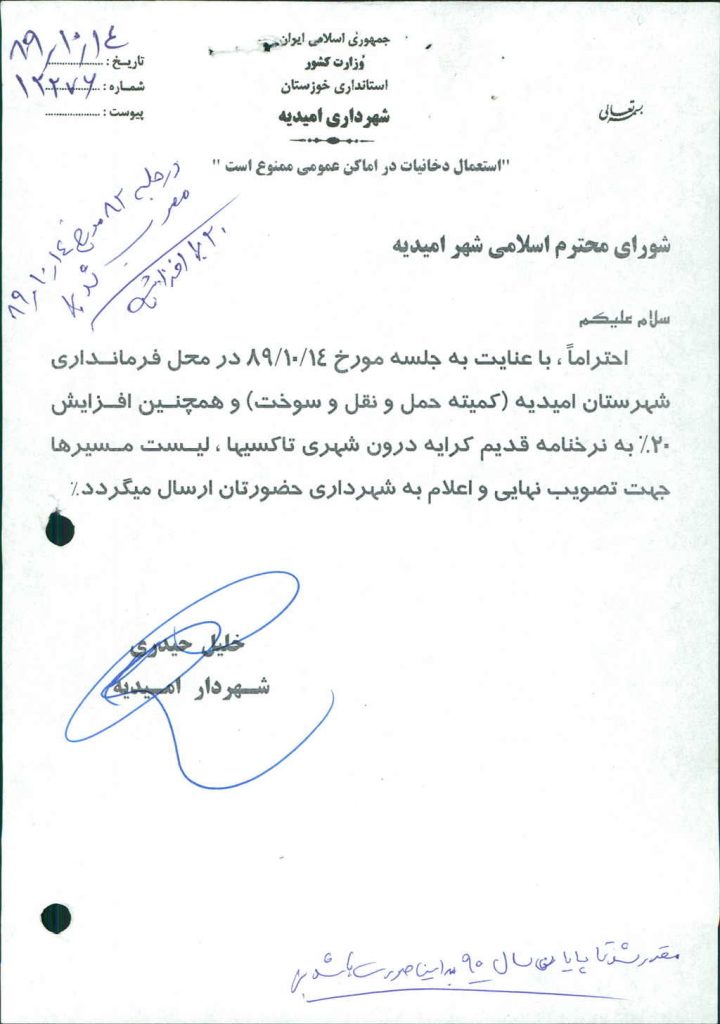 بسمه تعالی
جمهوری اسلامی ایران
وزارت کشور
استانداری خوزستان
شهرداری امیدیه
تاریخ : ۸۹/۱۰/۱۴
شماره : ۱۲۲۷۶
پیوست :
"استعمال دخانیات در اماکن عمومی ممنوع است "
در جلسه ۸۲ مورخ ۸۹/۱۰/۱۴
مصوب شد
۲۰٪ افزایش
شورای محترم اسلامی شهر امیدیه
سلام علیکم
احتراماً ، با عنایت به جلسه مورخ ۸۹/۱۰/۱۴ در محل فرمانداری
شهرستان امیدیه (کمیته حمل و نقل و سوخت) و همچنین افزایش
۲۰٪ به نرخنامه قدیم کرایه درون شهری تاکسیها ، لیست مسیرها
جهت تصویب نهایی و اعلام به شهرداری حضورتان ارسال میگردد٪
خلیل حیدری
شهردار امیدیه
مقرر شد تا پایان سال ۹۰ به این صورت باشد